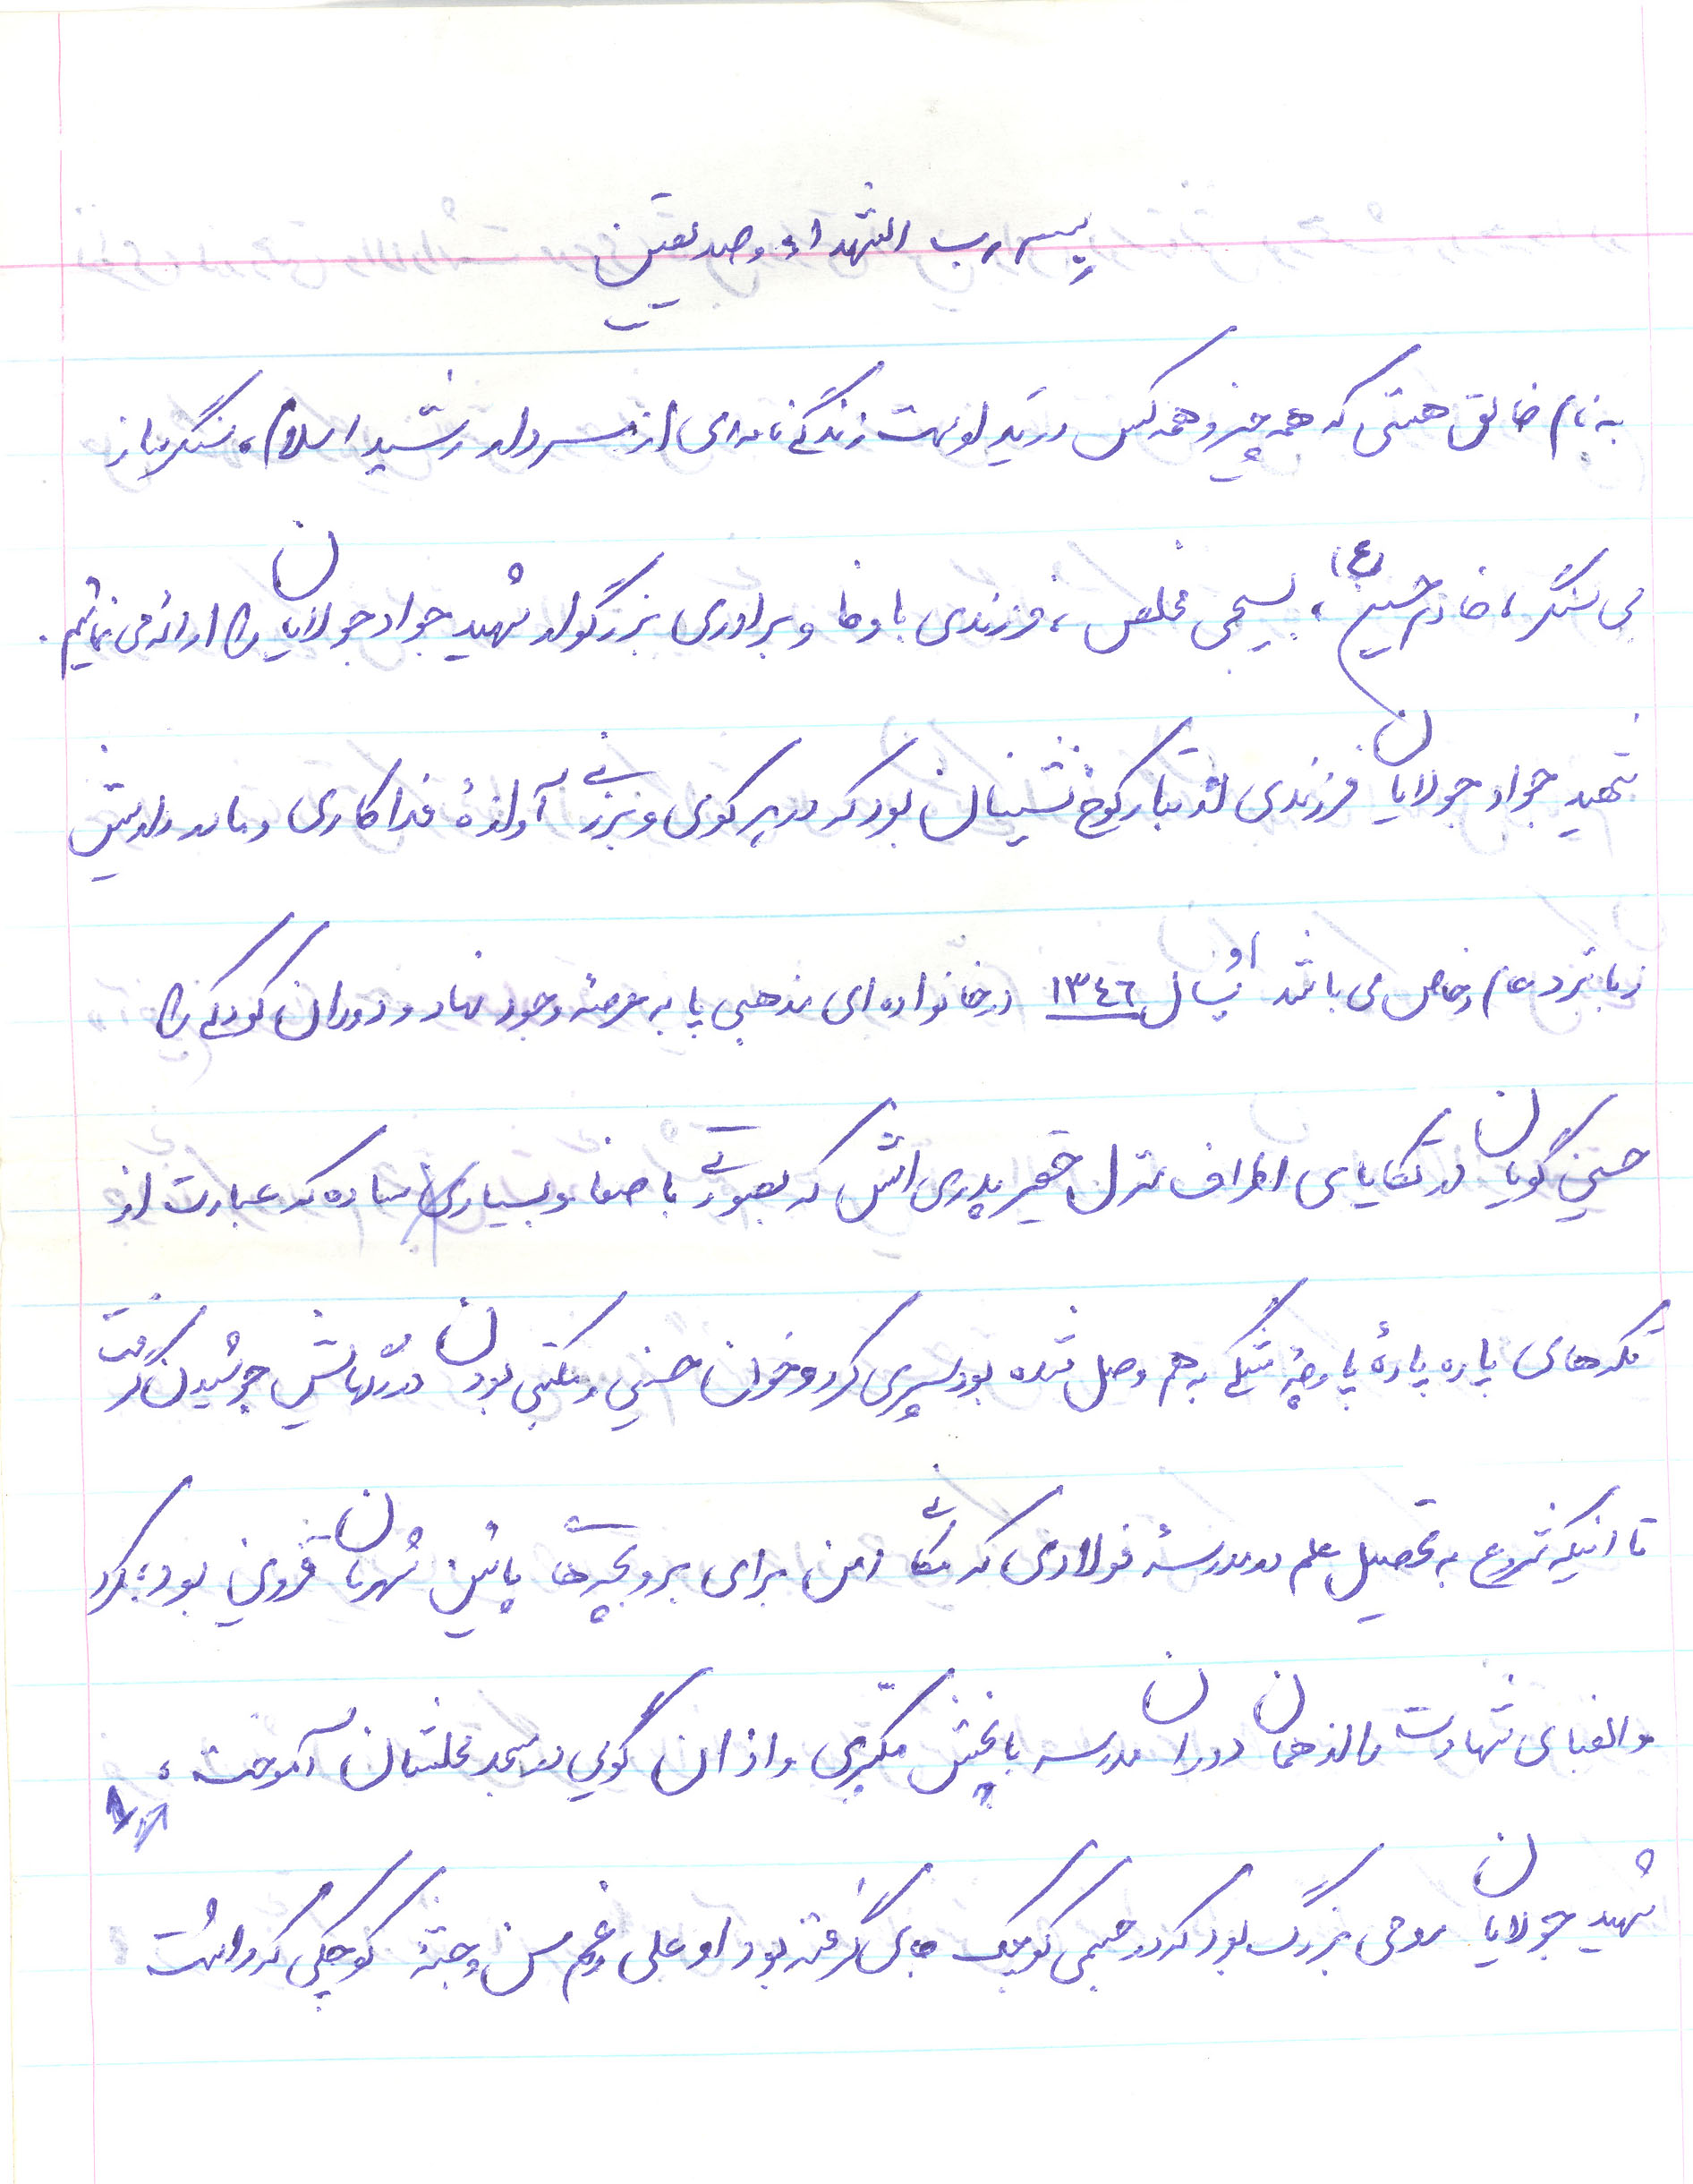 بسم رب الشهداء و صدیقین
به نام خالق هستی که همه چیز و همه کس در ید اوست زندگی نامه ای از سردار رشید اسلام، سنگرساز
بی سنگر، خادم حسین (ع)، بسیجی مخلص، فرزندی با وفا و برادری بزرگوار شهید جواد جولایان را ارائه می نمائیم.
شهید جواد جولایان فرزندی از تبار کوخ نشینان بود که در هر کوی و برزنی آوازهٔ فداکاری و
زبانزد عام و خاص می باشد او بسال ١٣٤٦ در خانواده ای مذهبی پا به عرصهٔ وجود نهاد و دوران کودکی را
حسین گویان در تکایای اطراف منزل حقیر پدری اش که بصورتی با صفا و بسیار ساده که عبارت از
تکه های پاره پارهٔ پارچهٔ مشکی به هم وصل شده بود سپری کرد و خون حسینی و مکتبی بودن در رگهایش جوشیدن گرفت
تا اینکه شروع به تحصیل علم در مدرسهٔ فولادی که مکانی امن برای بر و بچه های پائین شهرنشان قزوین بود؛ کرد
و الفبای شهادت را از همان دوران مدرسه با پخش مکبّری و اذان گویی در مسجد محلشان آموخت؛
شهید جولایان روحی بزرگ بود که در جسمی کوچک جای گرفته بود او علی رغم سن و جثهٔ کوچکی که داشت